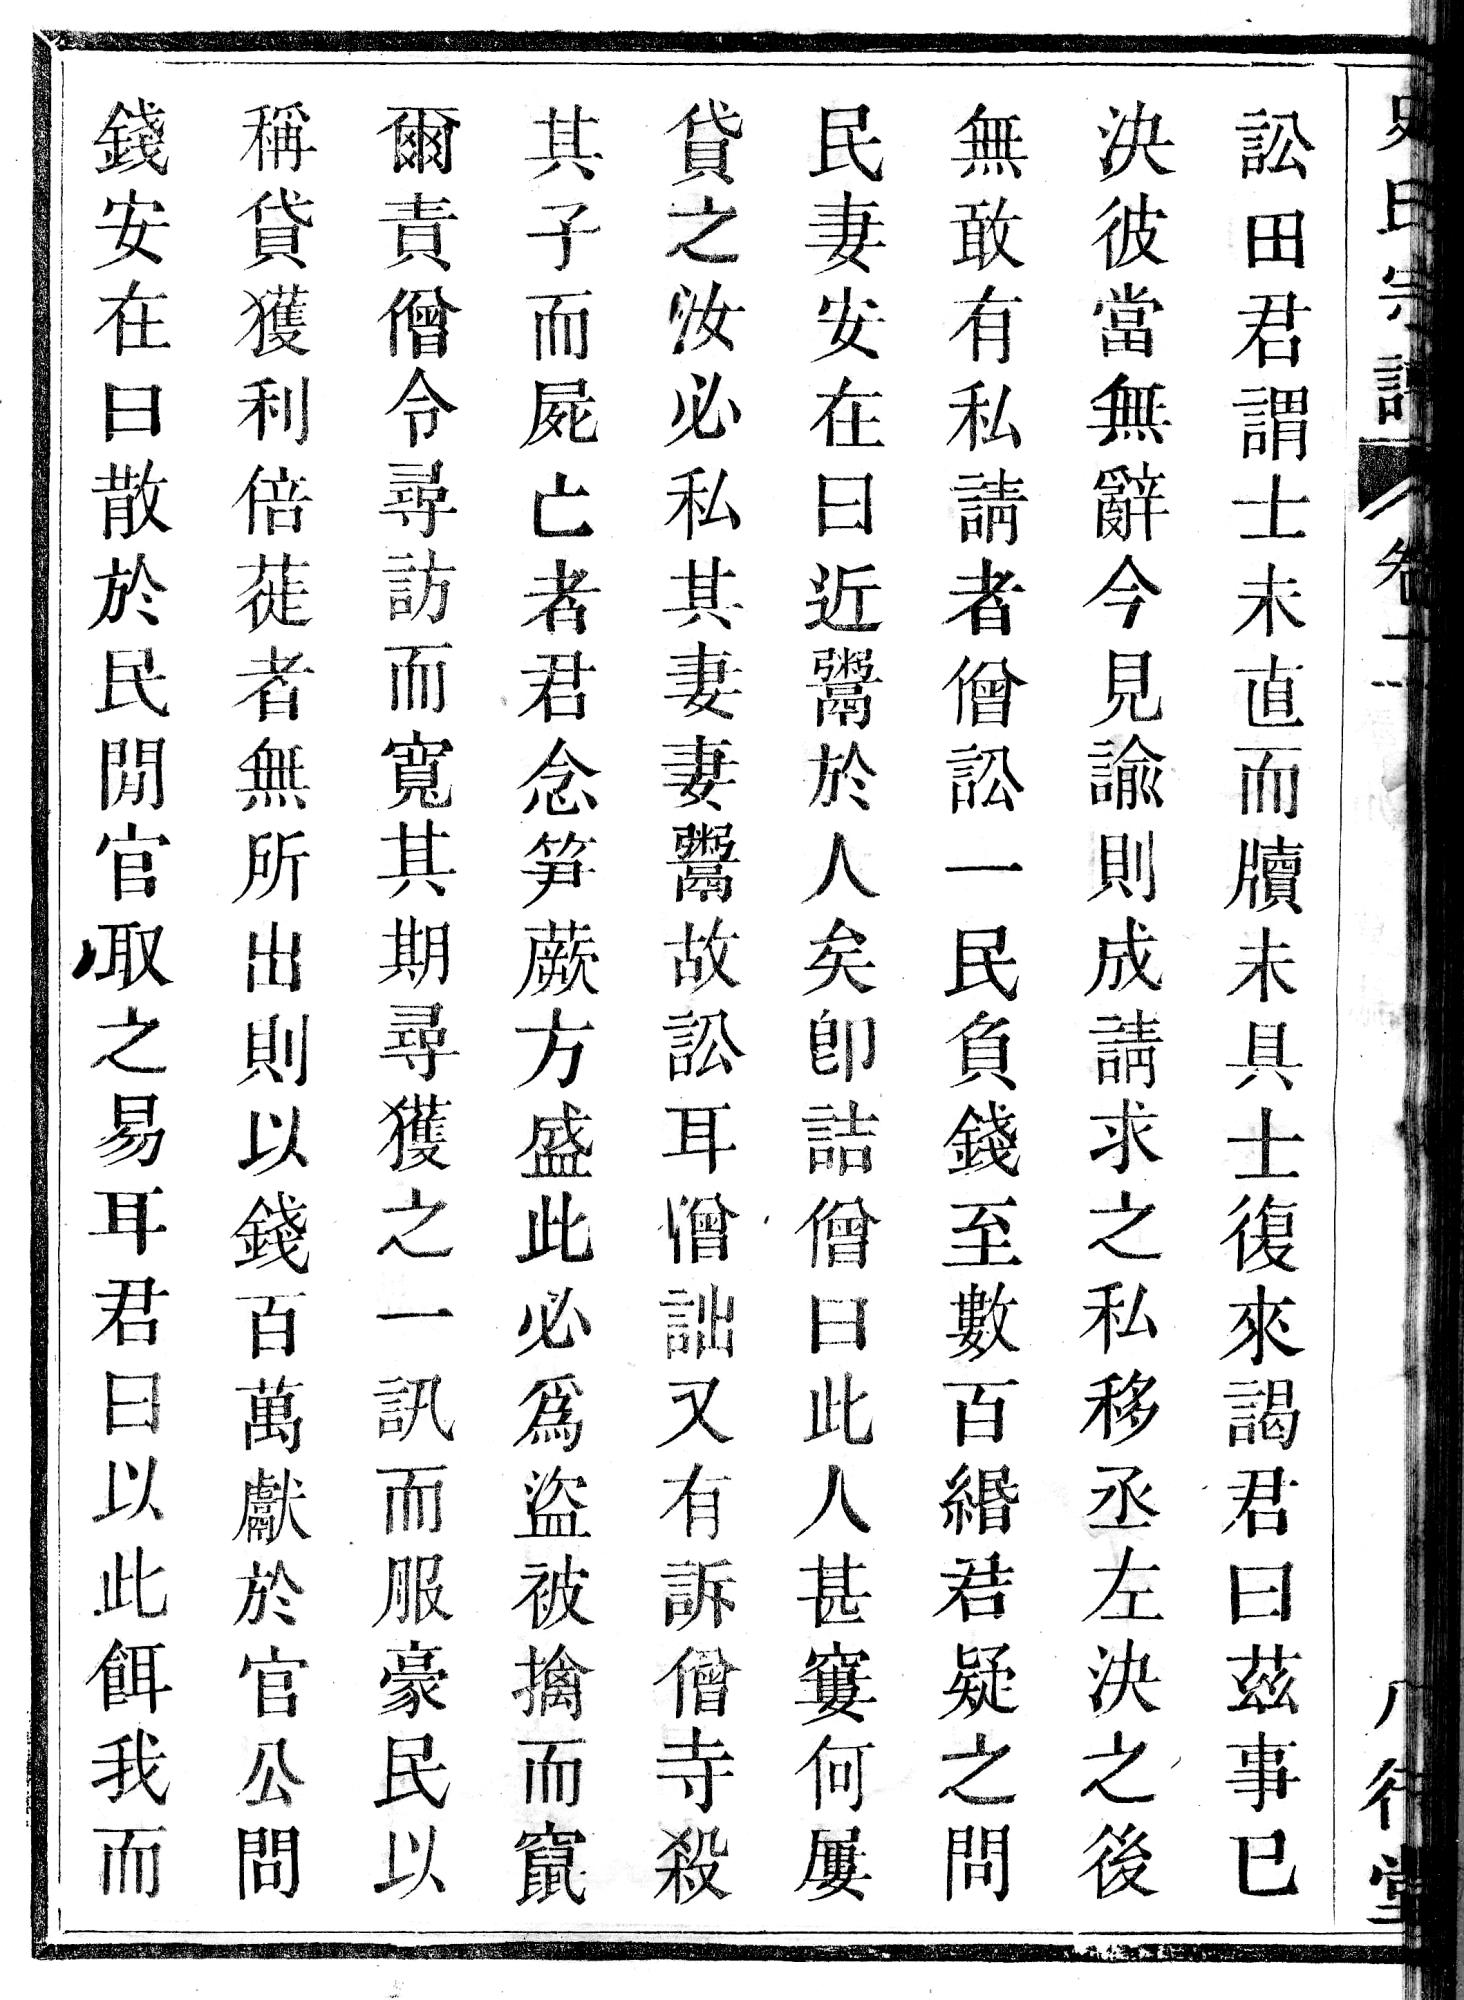 史氏宗譜 卷二 八行堂
訟田君謂士未直而牘未具士復來謁君曰茲事已
決彼當無辭今見諭則成請求之私移丞左決之後
無敢有私請者僧訟一民負錢至數百緡君疑之問
民妻安在曰近鬻於人矣卽詰僧曰此人甚窶何屢
貸之汝必私其妻妻鬻故訟耳僧詘又有訴僧寺殺
其子而屍亡者君念笋蕨方盛此必爲盜被擒而竄
爾責僧令尋訪而寬其期尋獲之一訊而服豪民以
稱貸獲利倍蓰者無所出則以錢百萬獻於官公問
錢安在曰散於民閒官取之易耳君曰以此餌我而